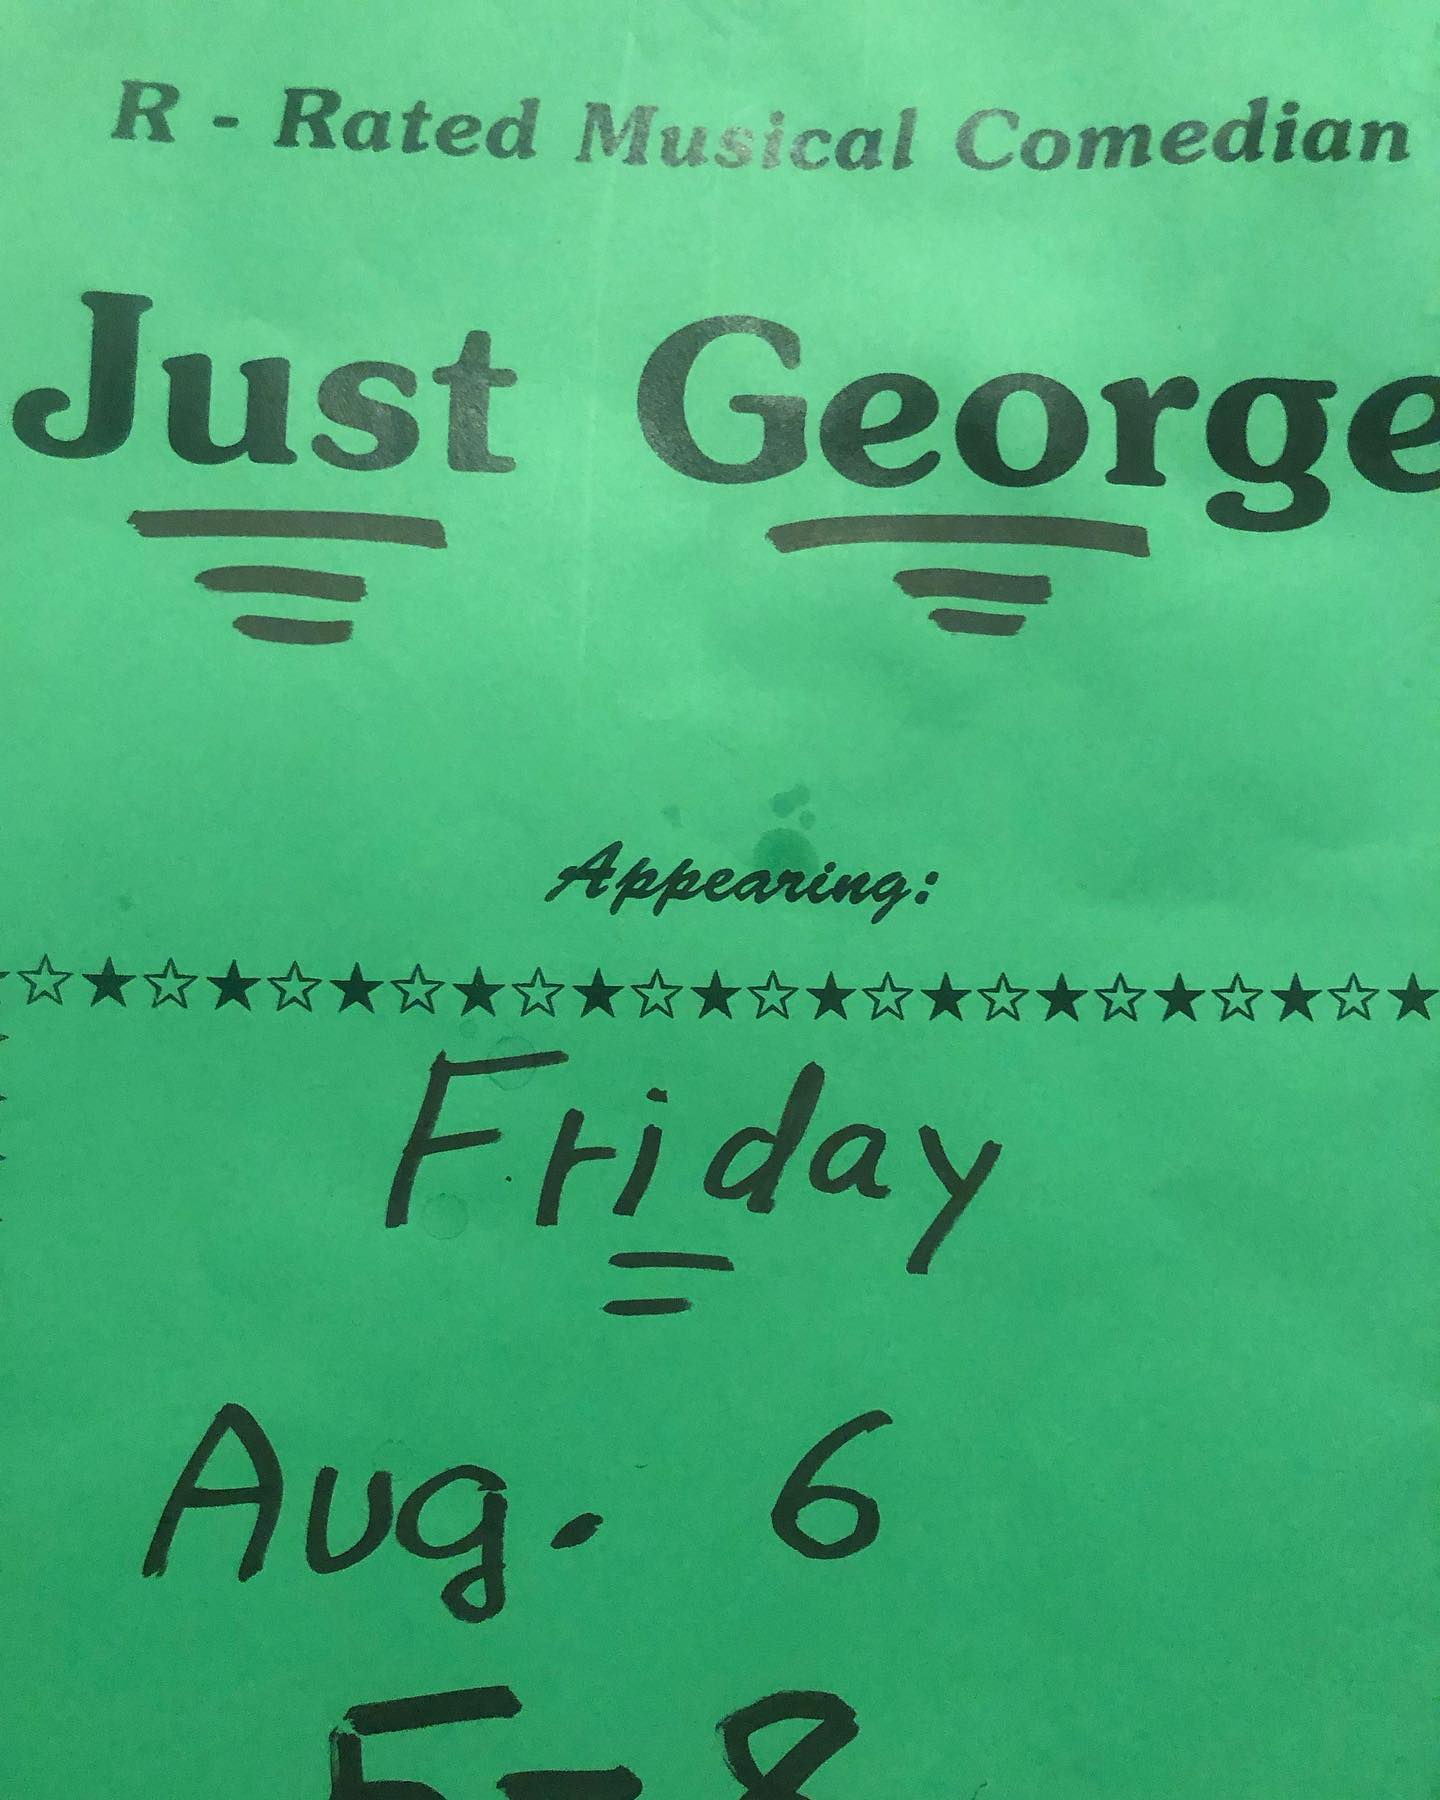 R - Rated Musical Comedian
Just George
Appearing:
Friday
Aug. 6
5-8